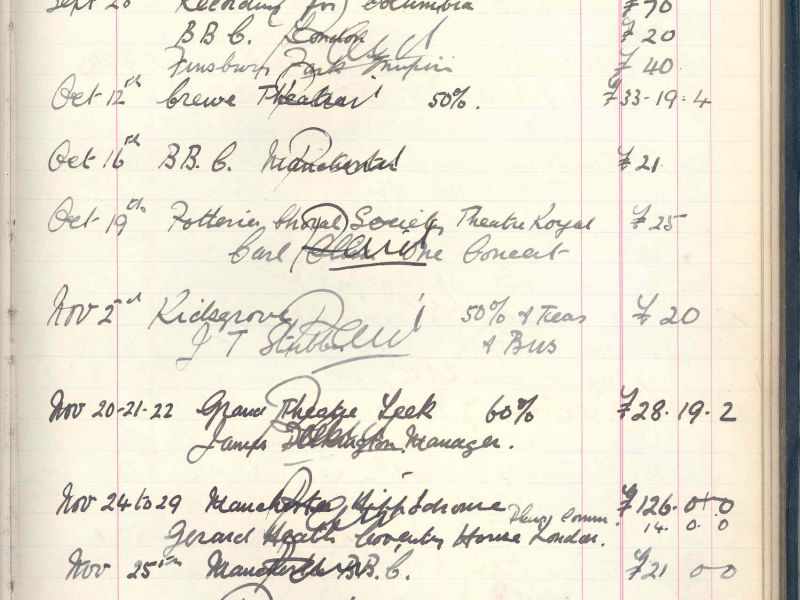 Sept 20 Recording for Columbia £70
B B C. London £20
Finsbury Park Empire £40
Oct 12th Crewe Theatre 50%. £33-19-4
Oct 16th B B. C. Manchester £21
Oct 19th Potteries Choral Society Theatre Royal £25
Carl One Concert
Nov 2nd Kidsgrove 50% & Teas £20
J T & Bus
Nov 20-21-22 Grand Theatre Leek 60% £28. 19. 2
James Manager.
Nov 24 to 29 Manchester Hippodrome £126. 0-0
Gerard Heath Coventry House London. comm. 14. 0. 0
Nov 25th Manchester B.B.C. £21 0-0